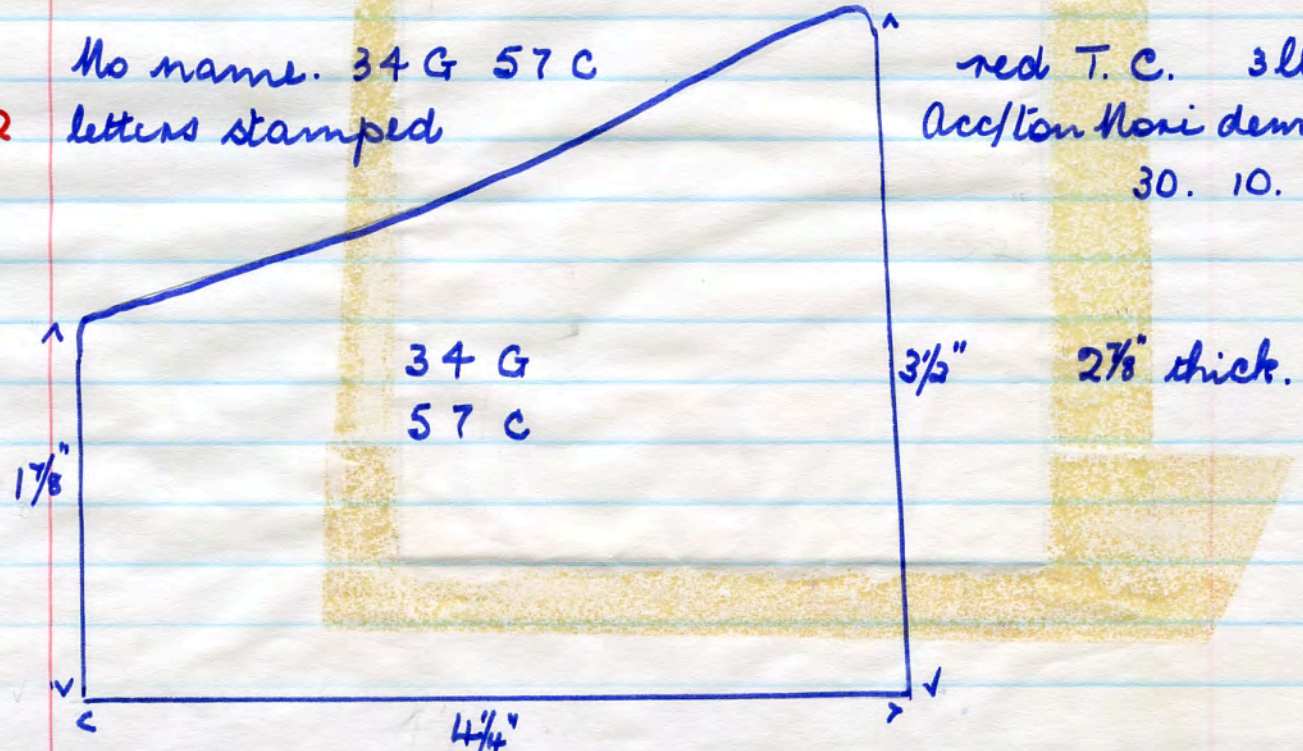 No name. 34 G 57 C
letters stamped
red T. C. 3
Acc/ton Nori dem
30. 10.
34 G
57 C
1 7/8"
3 1/2"
2 7/8" thick.
4 1/4"